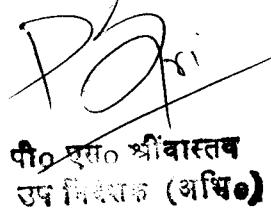 पी० एस० श्रीवास्तव
उप निदेशक (अभि०)